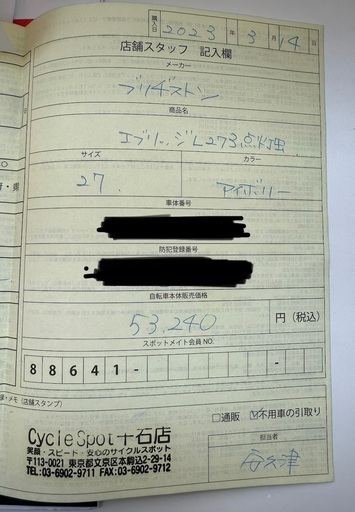 購入日 2023 年 3 月 14 日
店舗スタッフ 記入欄
メーカー
ブリヂストン
商品名
エブリッジL273点灯虫
サイズ カラー
27. アイボリー
車体番号
防犯登録番号
自転車本体販売価格
53,240 円(税込)
スポットメイト会員NO.
88641- -
メモ(店舗スタンプ)
□通販 ☑不用車の引取り
担当者
Cycle Spot 千石店
笑顔・スピード・安心のサイクルスポット
〒113-0021 東京都文京区本駒込2-29-14
TEL:03-6902-9711 FAX:03-6902-9712